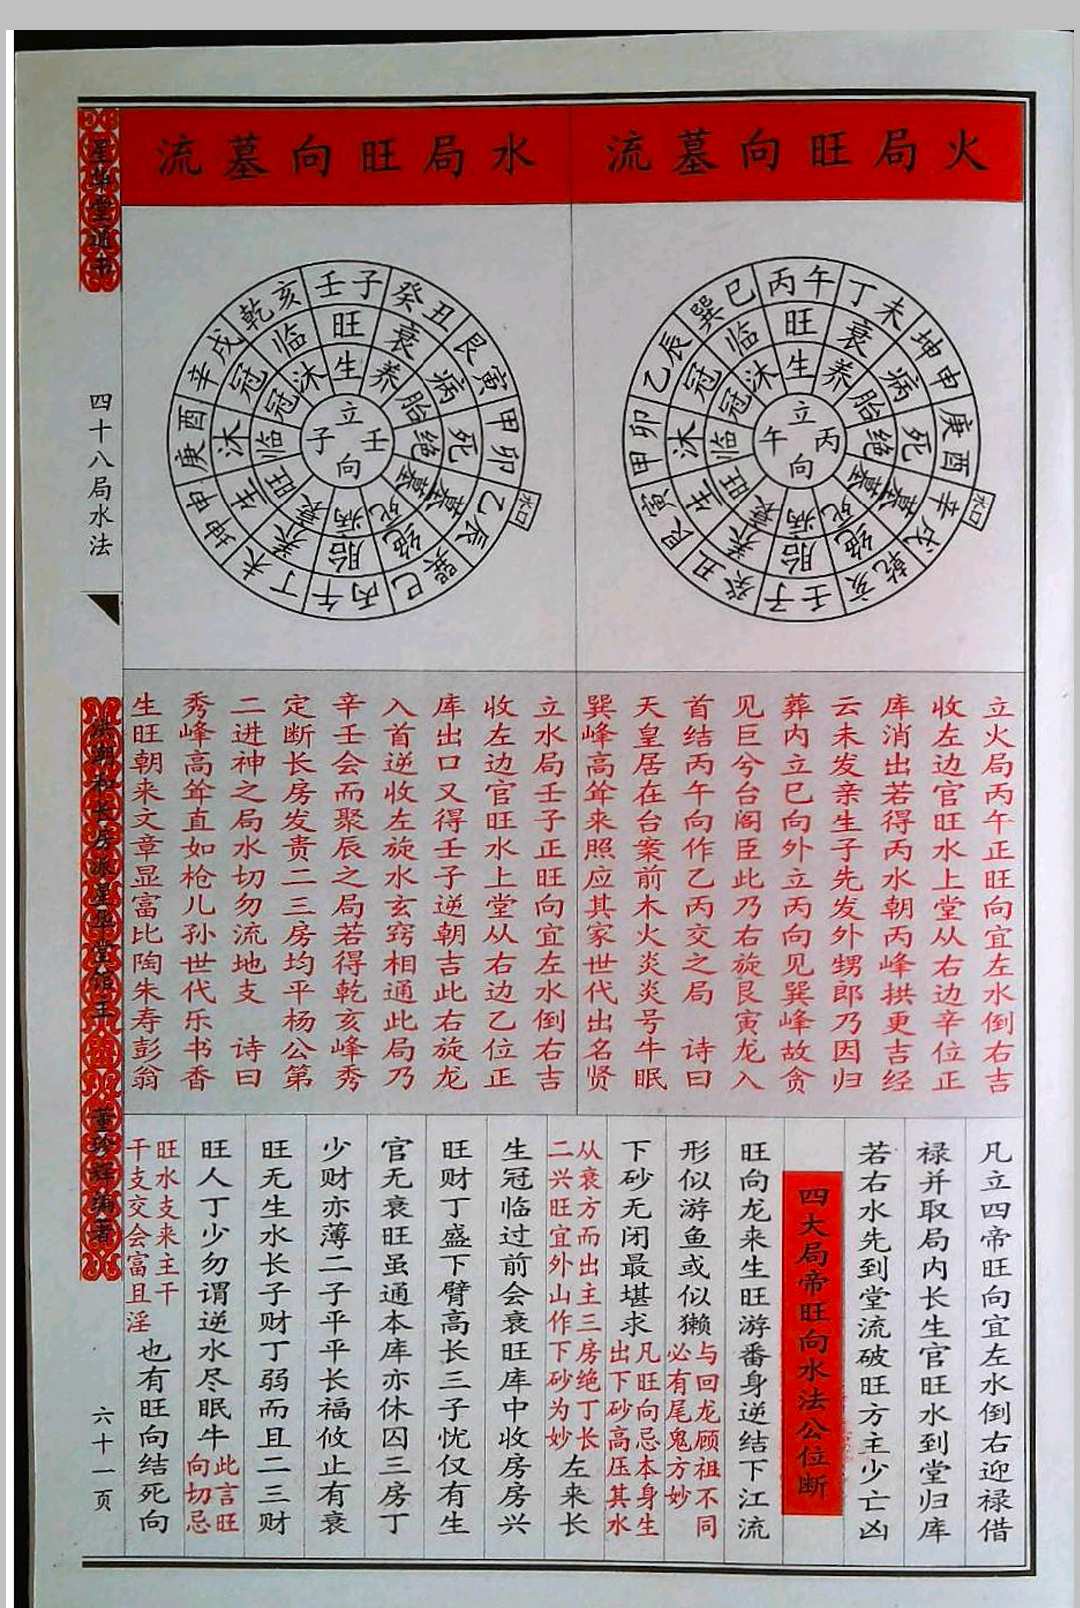 火局旺向墓流
水局旺向墓流
丙午
丁未
坤申
庚酉
辛戌
乾亥
壬子
癸丑
艮寅
甲卯
乙辰
巽巳
旺
衰
病
死
墓
绝
胎
养
生
沐
冠
临
生
养
胎
绝
墓
死
病
衰
旺
临
冠
沐
立
丙
向
午
水口
壬子
癸丑
艮寅
甲卯
乙辰
巽巳
丙午
丁未
坤申
庚酉
辛戌
乾亥
旺
衰
病
死
墓
绝
胎
养
生
沐
冠
临
生
养
胎
绝
墓
死
病
衰
旺
临
冠
沐
立
壬
向
子
水口
立火局丙午正旺向宜左水倒右吉
收左边官旺水上堂从右边辛位正
库消出若得丙水朝丙峰拱更吉经
云未发亲生子先发外甥郎乃因归
葬内立巳向外立丙向见巽峰故贪
见巨兮台阁臣此乃右旋艮寅龙入
首结丙午向作乙丙交之局 诗曰
天皇居在台案前木火炎炎号牛眠
巽峰高耸来照应其家世代出名贤
立水局壬子正旺向宜左水倒右吉
收左边官旺水上堂从右边乙位正
库出口又得壬子逆朝吉此右旋龙
入首逆收左旋水玄窍相通此局乃
辛壬会而聚辰之局若得乾亥峰秀
定断长房发贵二三房均平杨公第
二进神之局水切勿流地支 诗曰
秀峰高耸直如枪儿孙世代乐书香
生旺朝来文章显富比陶朱寿彭翁
凡立四帝旺向宜左水倒右迎禄借
禄并取局内长生官旺水到堂归库
若右水先到堂流破旺方主少亡凶
四大局帝旺向水法公位断
旺向龙来生旺游番身逆结下江流
形似游鱼或似獭与回龙顾祖不同必有尾鬼方妙
下砂无闭最堪求凡旺向忌本身生出下砂高压其水
从衰方而出主三房绝丁长二兴旺宜外山作下砂为妙左来长
生冠临过前会衰旺库中收房房兴
旺财丁盛下臂高长三子忧仅有生
官无衰旺虽通本库亦休囚三房丁
少财亦薄二子平平长福攸止有衰
旺无生水长子财丁弱而且二三财
旺人丁少勿谓逆水尽眠牛此言旺向切忌
旺水支来主干干支交会富且淫也有旺向结死向
星华堂通书
四十八局水法
洪潮和长房派星华堂馆主
董珍辉编著
六十一页